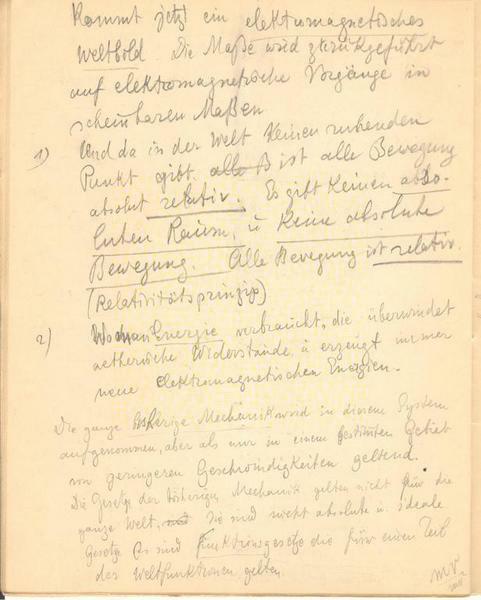 Kommt jetzt ein elektromagnetisches
Weltbild. Die Maße wird zurükgeführt
auf elektromagnetische Vorgänge in
scheinbaren Maßen
1) Und da in der Welt keinen ruhenden
Punkt gibt, alle B ist alle Bewegung
absolut relativ. Es gibt keinen abso-
luten Raum, u keine absolute
Bewegung. Alle Bewegung ist relativ.
(Relativitätsprinzip)
2) Energie verbraucht, die überwindet
aetherische Widerstände u erzeugt immer
neue elektromagnetischen Energien.
Die ganze bisherige Mechanik wird in diesem System
aufgenommen, aber als nur in einem bestimten Gebiet
von geringeren Geschwindigkeiten geltend.
Die Gesetze der bisherigen Mechanik gelten nicht für die
ganze Welt, und Sie sind nicht absolute u. ideale
Gesetze Es sind Funktionsgesetze die fürw einen Teil
des Weltfunktionen gelten.